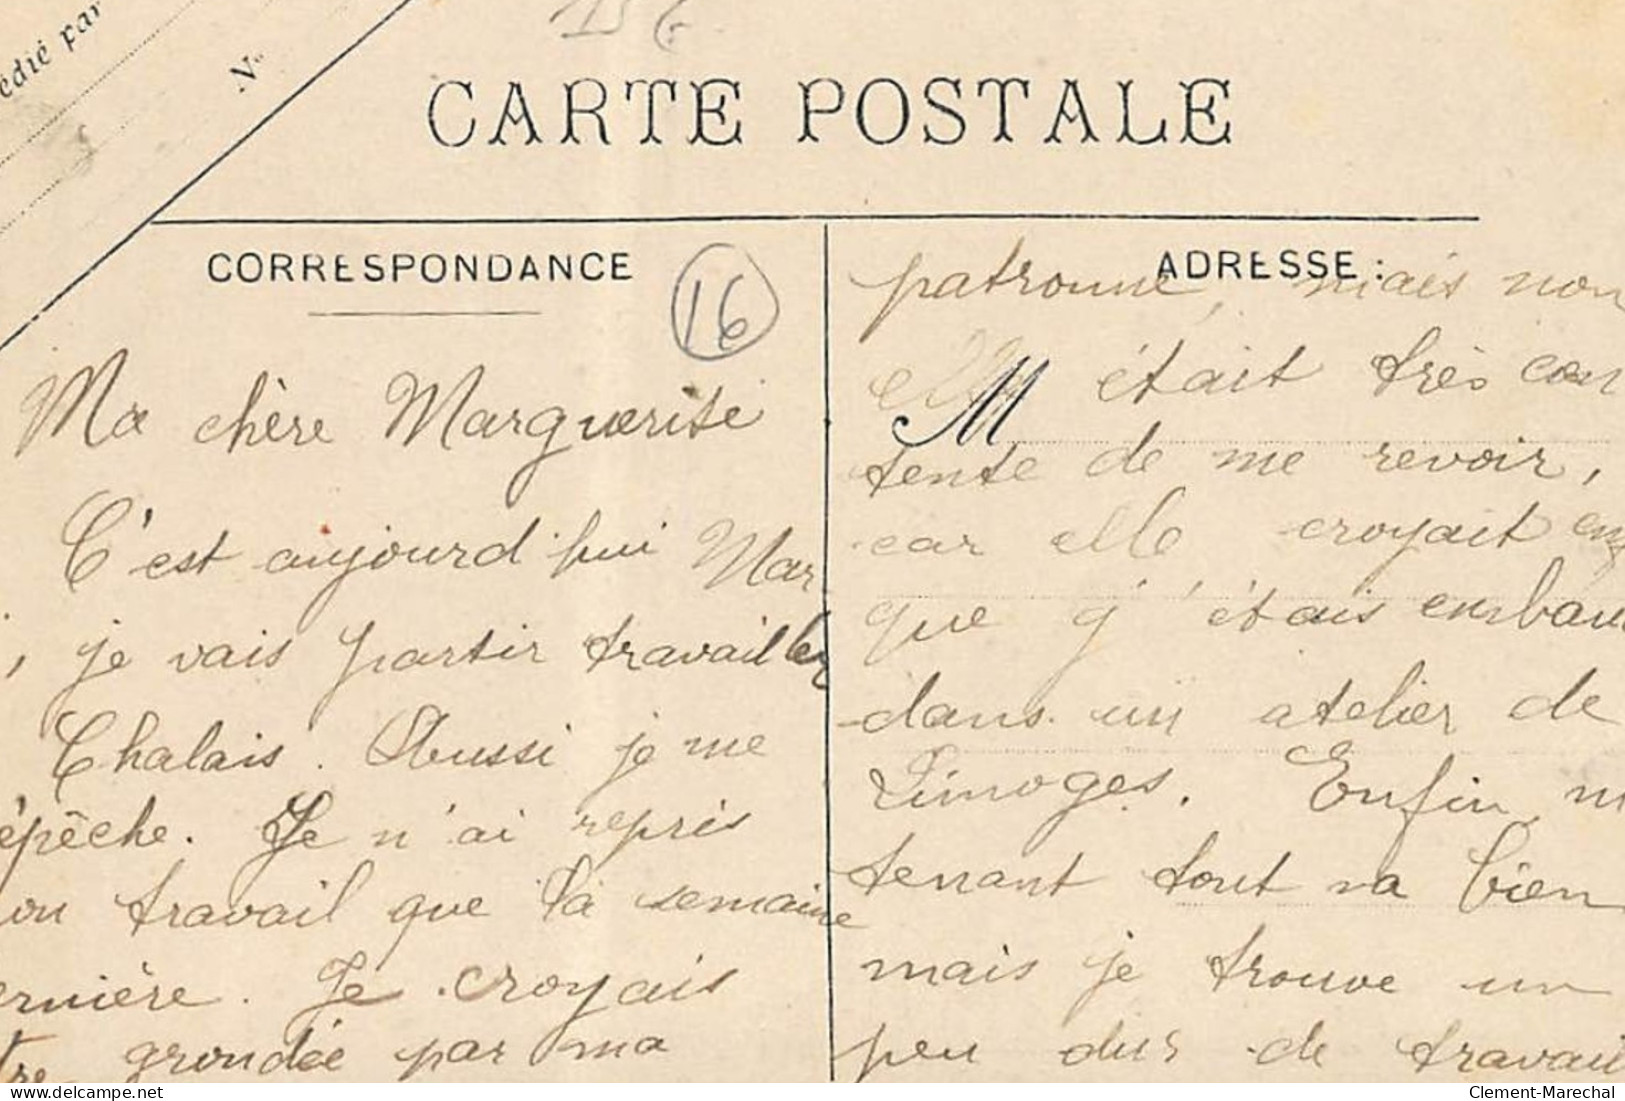 édié par
N°
156
CARTE POSTALE
CORRESPONDANCE
16
Ma chère Marguerite
C'est aujourd'hui Mar
, je vais partir travailler
Chalais. Aussi je me
épêche. Je n'ai repris
on travail que la semaine
ernière. Je croyais
tre grondée par ma
ADRESSE :
patronne, mais non
elle était très con
M
tente de me revoir,
car elle croyait
que j'étais embau
dans un atelier de
Limoges. Enfin m
tenant tout va bien
mais je trouve un
peu dur de travail
Clement-Marechal